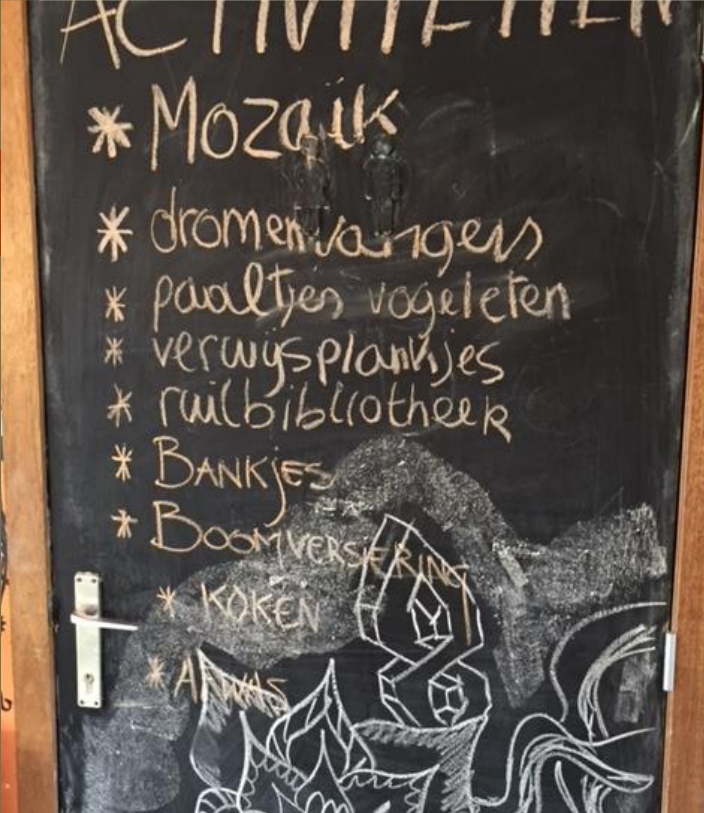 ACTIVITEITEN
* Mozaïk
* dromenvangers
* paaltjes vogeleten
* verwijsplankjes
* ruilbibliotheek
* BANKjES
* BOOMVERSIERING
* KOKEN
* AFWAS